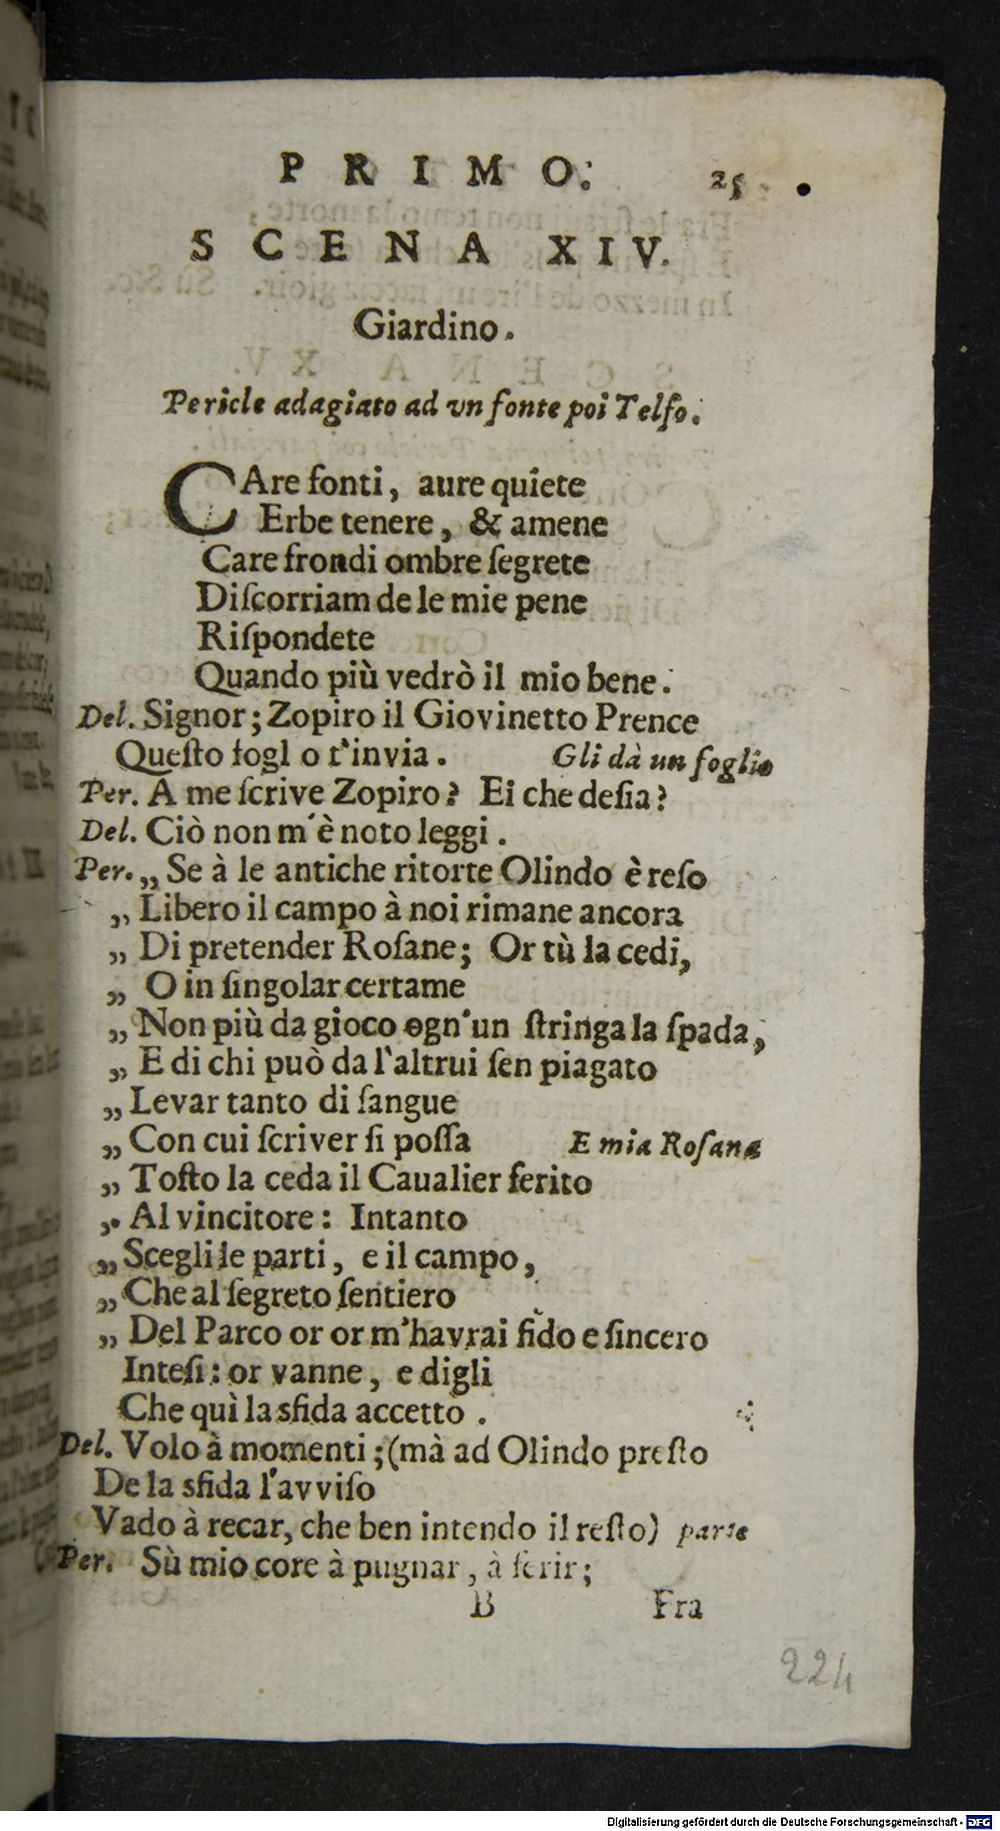 PRIMO. 25
SCENA XIV.
Giardino.
Pericle adagiato ad vn fonte poi Telso.
CAre fonti, aure quiete
Erbe tenere, & amene
Care frondi ombre ſegrete
Diſcorriam de le mie pene
Riſpondete
Quando più vedrò il mio bene.
Del. Signor; Zopiro il Giovinetto Prence
Queſto fogl o t'invia. Gli dà un foglio
Per. A me ſcrive Zopiro? Ei che deſia?
Del. Ciò non m'è noto leggi.
Per. „ Se à le antiche ritorte Olindo è reſo
„ Libero il campo à noi rimane ancora
„ Di pretender Roſane; Or tù la cedi,
„ O in ſingolar certame
„ Non più da gioco ogn'un ſtringa la ſpada,
„ E di chi può da l'altrui ſen piagato
„ Levar tanto di ſangue
„ Con cui ſcriver ſi poſſa E mia Roſane
„ Toſto la ceda il Caualier ferito
„ Al vincitore: Intanto
„ Scegli le parti, e il campo,
„ Che al ſegreto ſentiero
„ Del Parco or or m'havrai fido e ſincero
Inteſi: or vanne, e digli
Che quì la sfida accetto.
Del. Volo à momenti; (mà ad Olindo preſto
De la sfida l'avviſo
Vado à recar, che ben intendo il reſto) parte
Per. Sù mio core à pugnar, à ferir;
B Fra
224
Digitalisierung gefördert durch die Deutsche Forschungsgemeinschaft - DFG